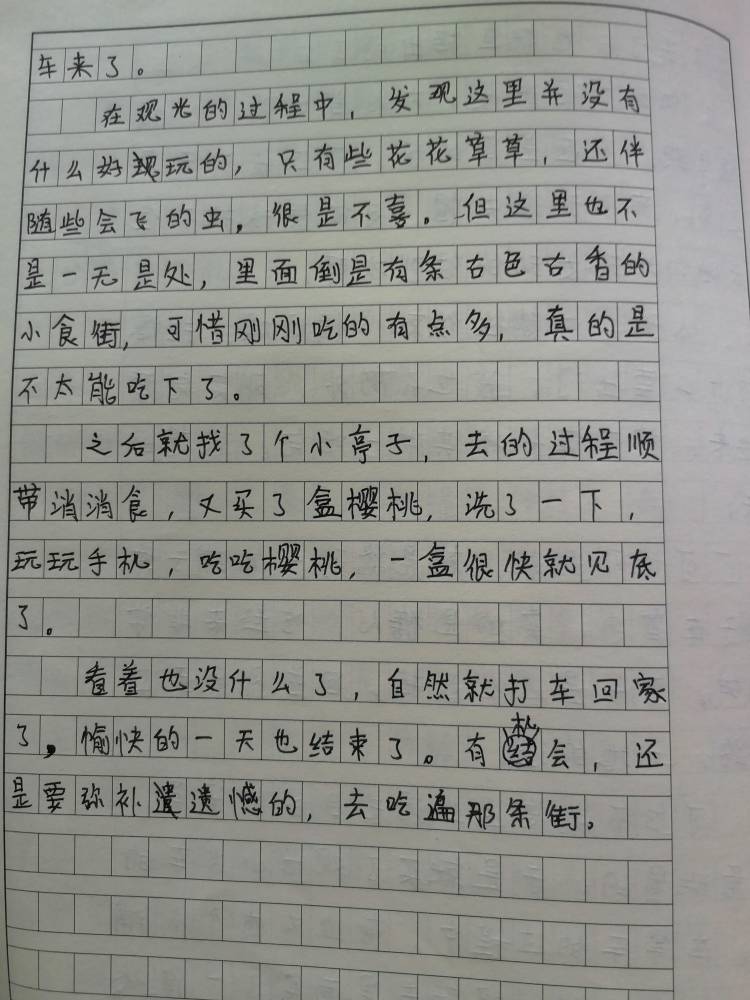 车来了。
在观光的过程中，发现这里并没有
什么好玩的，只有些花花草草，还伴
随些会飞的虫，很是不喜。但这里也不
是一无是处，里面倒是有条古色古香的
小食街，可惜刚刚吃的有点多，真的是
不太能吃下了。
之后就找了个小亭子，去的过程顺
带消消食，又买了盒樱桃，洗了一下，
玩玩手机，吃吃樱桃，一盒很快就见底
了。
看着也没什么了，自然就打车回家
了，愉快的一天也结束了。有机会，还
是要弥补遗憾的，去吃遍那条街。